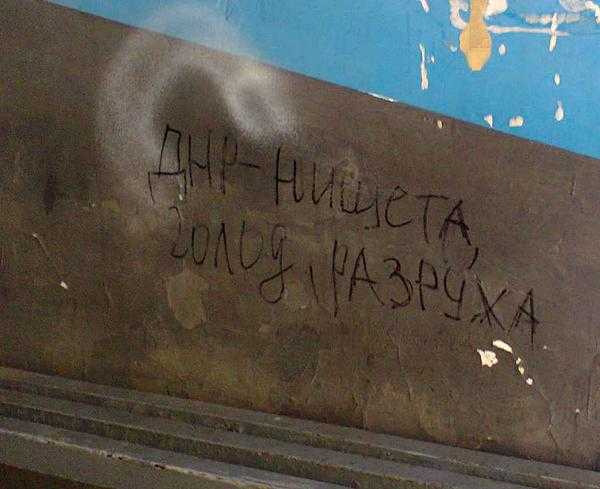 ДНР- НИЩЕТА,
голод, РАЗРУХА